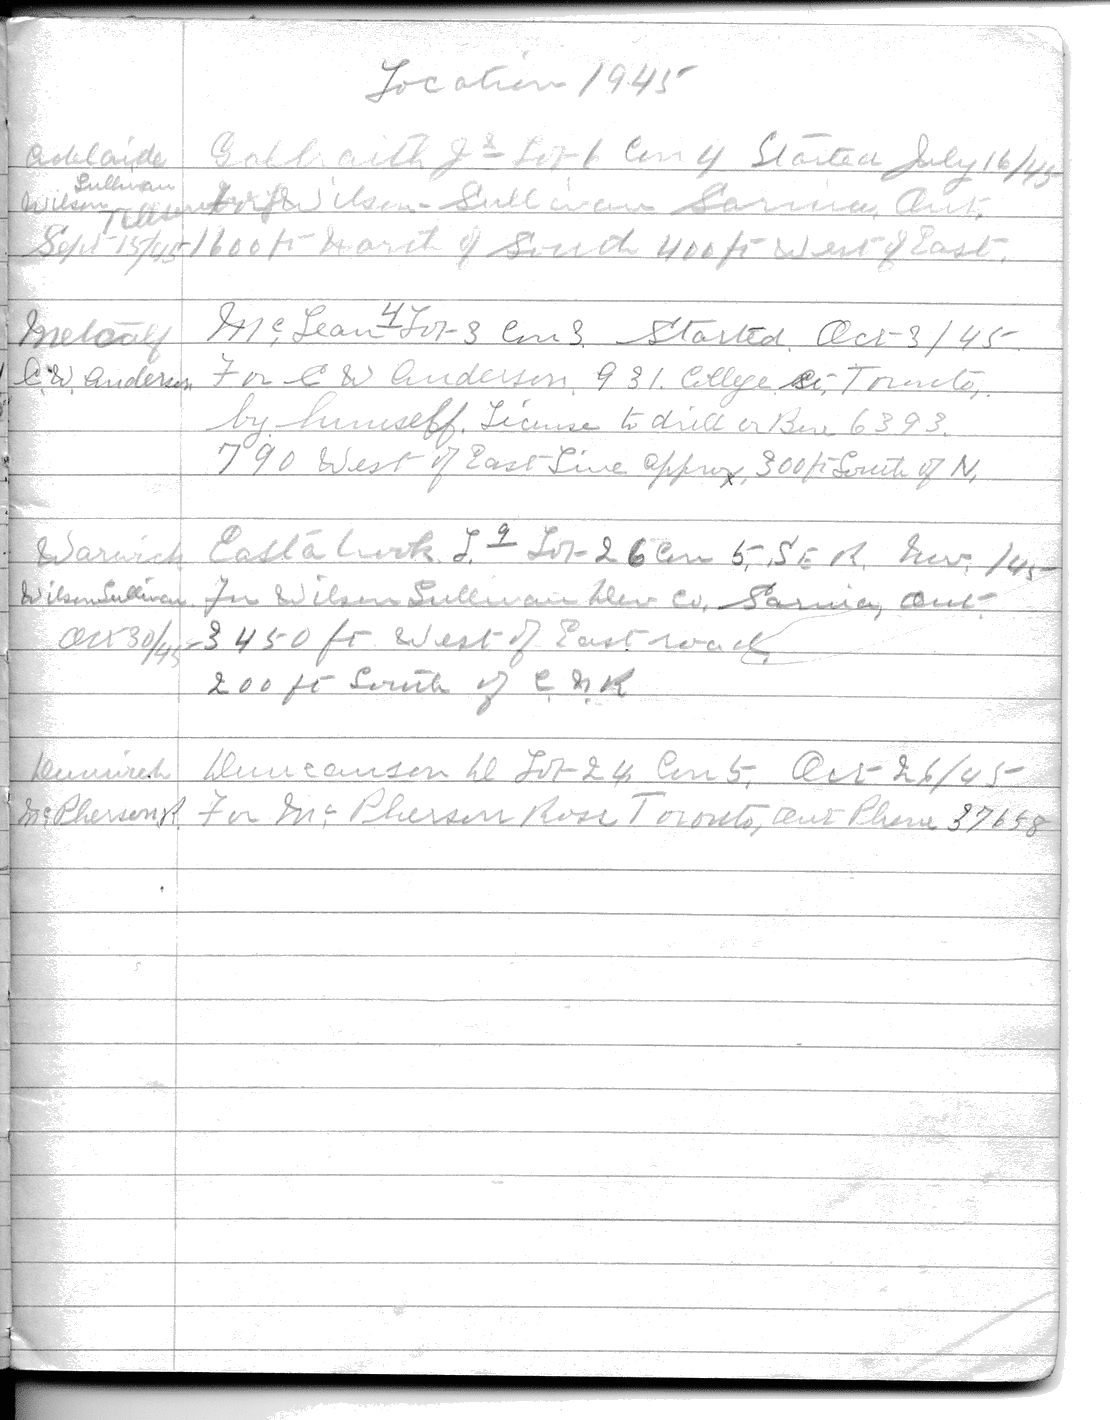 Location 1945
Adelaide Galbraith J Lot 6 Con 4 Started July 16/45
Sullivan
Wilson for Wilson-Sullivan Sarnia, Ont.
Sept 15/45 1600 ft North of South 400 ft West of East.
Metcalf Mc Lean 4 Lot 3 Con 3. Started. Oct 3/45.
C.W. Anderson For C W Anderson. 931. College St, Toronto,
by himself. License to drill or Bore 6393.
790 West of East Line approx, 300 ft South of N,
Warwick Eastabrook. L. 9 Lot 26 Con 5, S E R. Nov. /45
Wilson Sullivan. For Wilson Sullivan Dev Co, Sarnia, Ont.
Oct 30/45 3450 ft West of East road,
200 ft South of C. N. R
Dunwich Duncanson D Lot 24 Con 5, Oct 26/45
Mc Pherson R. For Mc Pherson Ross Toronto, Ont Phone 37658